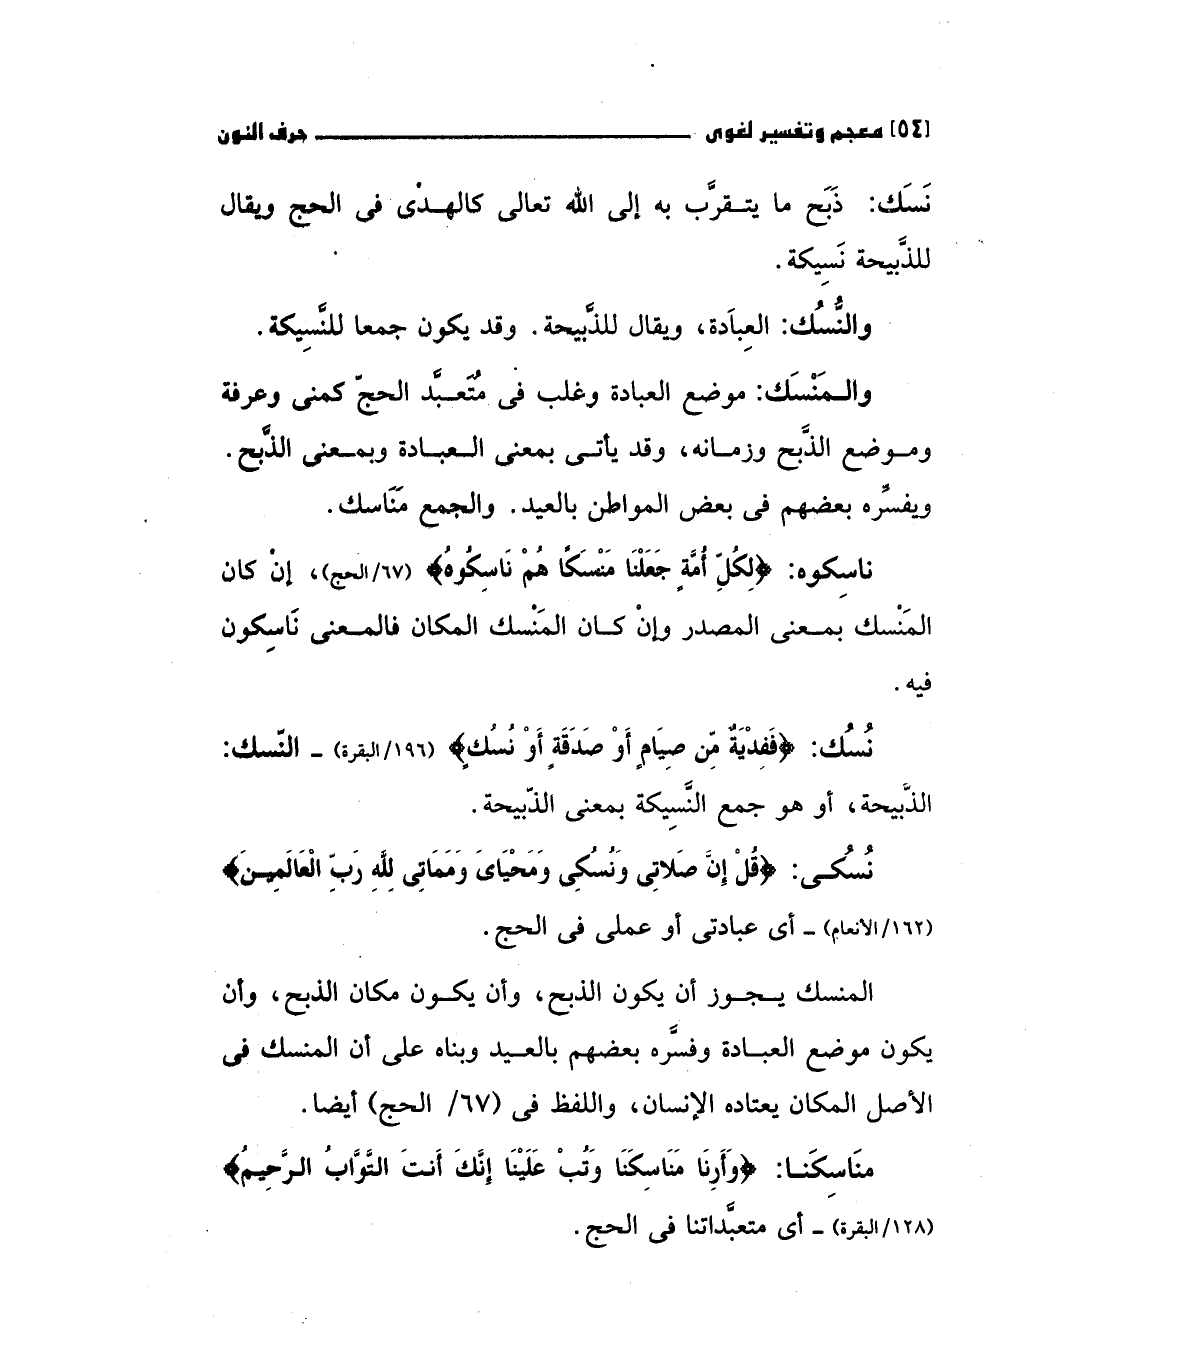 [٥٤] معجم وتفسير لغوى ــــــــــــ حرف النون
نَسَك: ذَبَح ما يتـقرَّب به إلى الله تعالى كالهـدْى فى الحج ويقال
للذَّبيحة نَسِيكة.
والنُّسُك: العِبَادة، ويقال للذَّبيحة. وقد يكون جمعا للنَّسِيكة.
والـمَنْسَك: موضع العبادة وغلب فى مُتَعـبَّد الحجّ كمنى وعرفة
ومـوضع الذَّبح وزمـانه، وقد يأتـى بمعنى الـعبـادة وبمـعنى الذَّبح.
ويفسِّره بعضهم فى بعض المواطن بالعيد. والجمع مَنَاسك.
ناسِكوه: ﴿لِكُلِّ أُمَّةٍ جَعَلْنَا مَنْسَكًا هُمْ نَاسِكُوهُ﴾ (٦٧/الحج)، إنْ كان
المَنْسك بمـعنى المصدر وإنْ كـان المَنْسك المكان فالمـعنى نَاسِكون
فيه.
نُسُك: ﴿فَفِدْيَةٌ مِّن صِيَامٍ أَوْ صَدَقَةٍ أَوْ نُسُكٍ﴾ (١٩٦/البقرة) ـ النّسك:
الذَّبيحة، أو هو جمع النَّسِيكة بمعنى الذّبيحة.
نُسُكـى: ﴿قُلْ إِنَّ صَلاتِى وَنُسُكِى وَمَحْيَاىَ وَمَمَاتِى لِلَّهِ رَبِّ الْعَالَمِيـنَ﴾
(١٦٢/الانعام) ـ أى عبادتى أو عملى فى الحج.
المنسك يـجـوز أن يكون الذبح، وأن يكـون مكان الذبح، وأن
يكون موضع العبـادة وفسَّره بعضهم بالعـيد وبناه على أن المنسك فى
الأصل المكان يعتاده الإنسان، واللفظ فى (٦٧/ الحج) أيضا.
منَاسِكَنـا: ﴿وَأَرِنَا مَنَاسِكَنَا وَتُبْ عَلَيْنَا إِنَّكَ أَنتَ التَّوَّابُ الـرَّحِيمُ﴾
(١٢٨/البقرة) ـ أى متعبَّداتنا فى الحج.